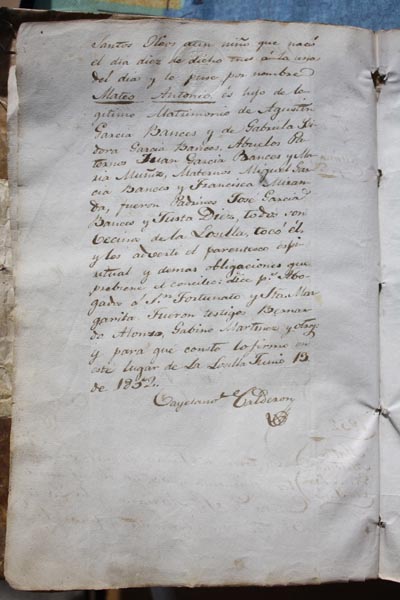 Santos Oleos a un niño que nació
el dia diez de dicho mes á la una
del dia y le puse por nombre
Mateo Antonio es hijo de le
gitimo Matrimonio de Agustin
Garcia Bances y de Gabriela Isi
dora Garcia Bances, Abuelos Pa
ternos Juan Garcia Bances y Ma
ria Muñiz, Maternos Miguel Gar
cia Bances y Francisca Miran
da, fueron Padrinos José Garcia
Bances y Justa Diez, todos con
vecinos de la Losilla, tocó él
y les adverti el parentesco espi
ritual y demas obligaciones que
probiene el concilio: dile pr. Abo
gado a Sn. Fortunato y Sta. Mar
garita. Fueron testigos Bernar
do Alonso, Gabino Martinez y otros
y para que conste lo firmo en
este lugar de La Losilla Junio 13
de 1852.
Cayetano Calderon